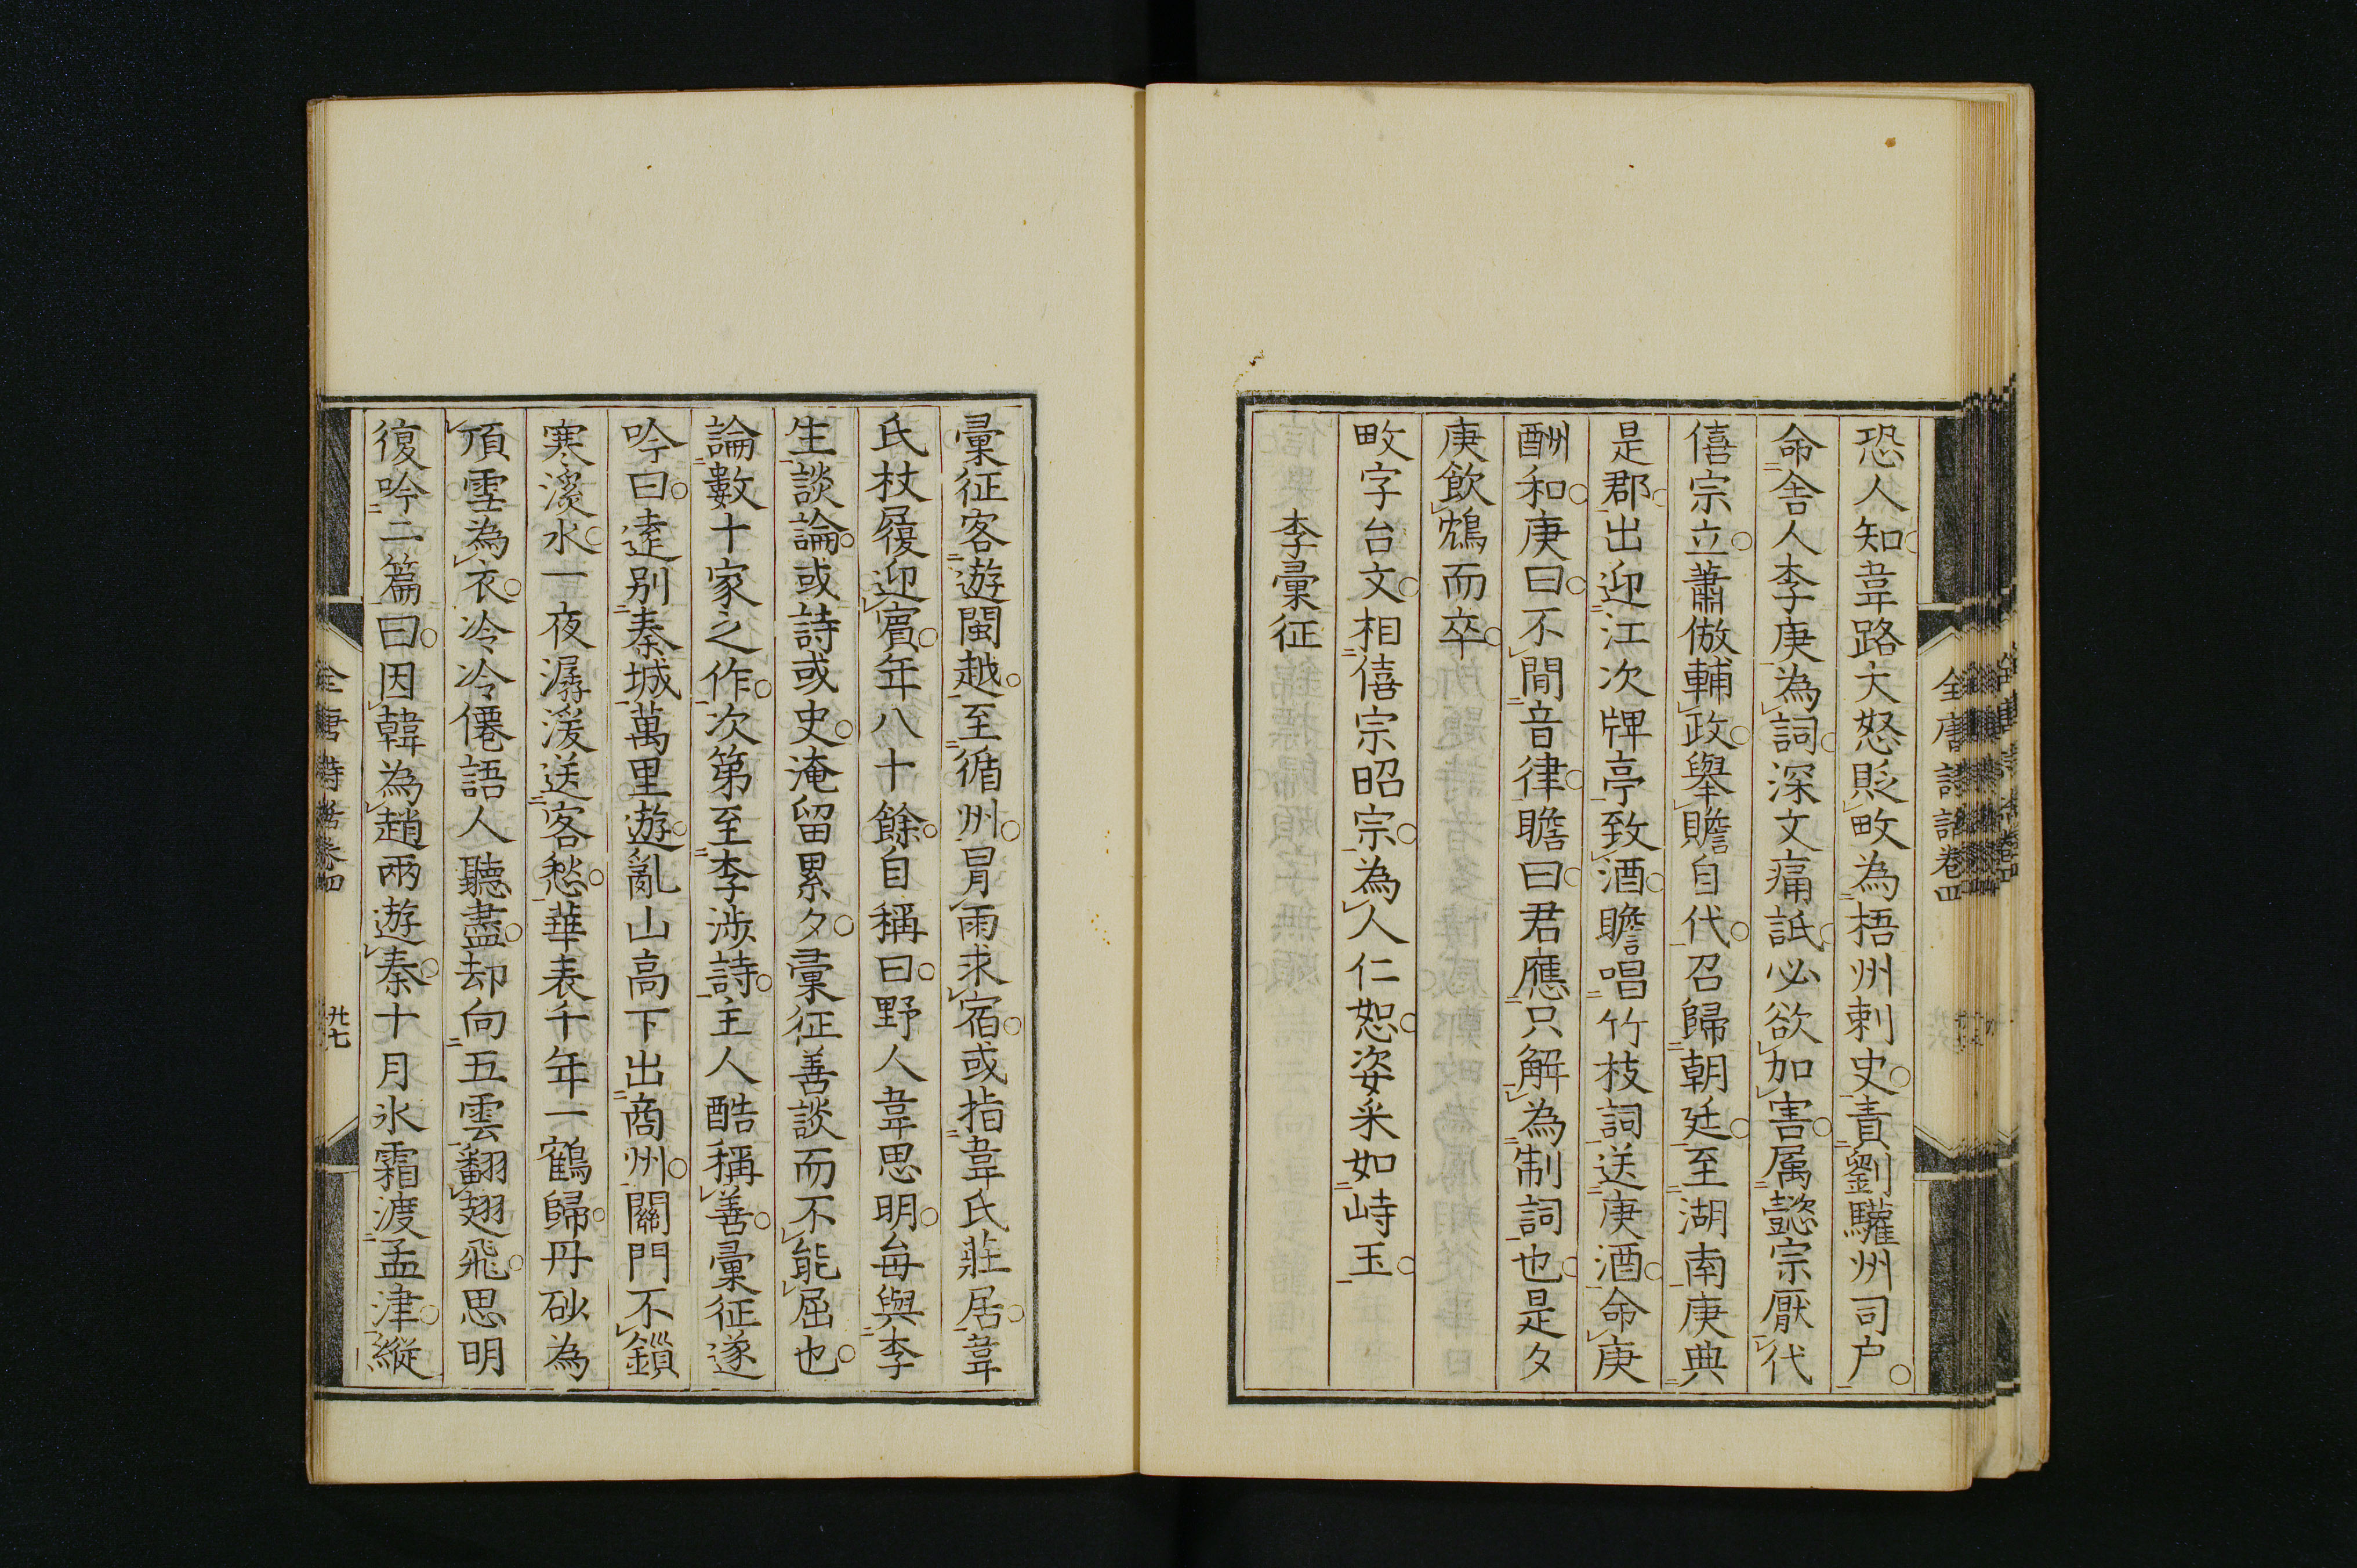 恐人知韋路大怒貶畋為梧州刺史責劉驩州司户
命舍人李庚為詞深文痛詆必欲加害属懿宗厭代
僖宗立蕭倣輔政舉贍自代召歸朝廷至湖南庚典
是郡出迎江次牌亭致酒瞻唱竹枝詞送庚酒命庚
酬和庚曰不閒音律瞻曰君應只解為制詞也是夕
庚飲鴆而卒
畋字台文相僖宗昭宗為人仁恕姿采如峙玉
李彚征
彚征客遊閩越至循州冐雨求宿或指韋氏莊居韋
氏杖履迎賔年八十餘自稱曰野人韋思明每與李
生談論或詩或史淹留累夕彚征善談而不能屈也
論數十家之作次第至李涉詩主人酷稱善彚征遂
吟曰逺别秦城萬里遊亂山高下出商州關門不鎻
寒溪水一夜潺湲送客愁華表千年一鶴歸丹砂為
頂雪為衣冷冷僊語人聽盡却向五雲翻翅飛思明
復吟二篇曰因韓為趙兩遊秦十月氷霜渡孟津縱
全唐詩話卷四
全唐詩話卷四 卅七